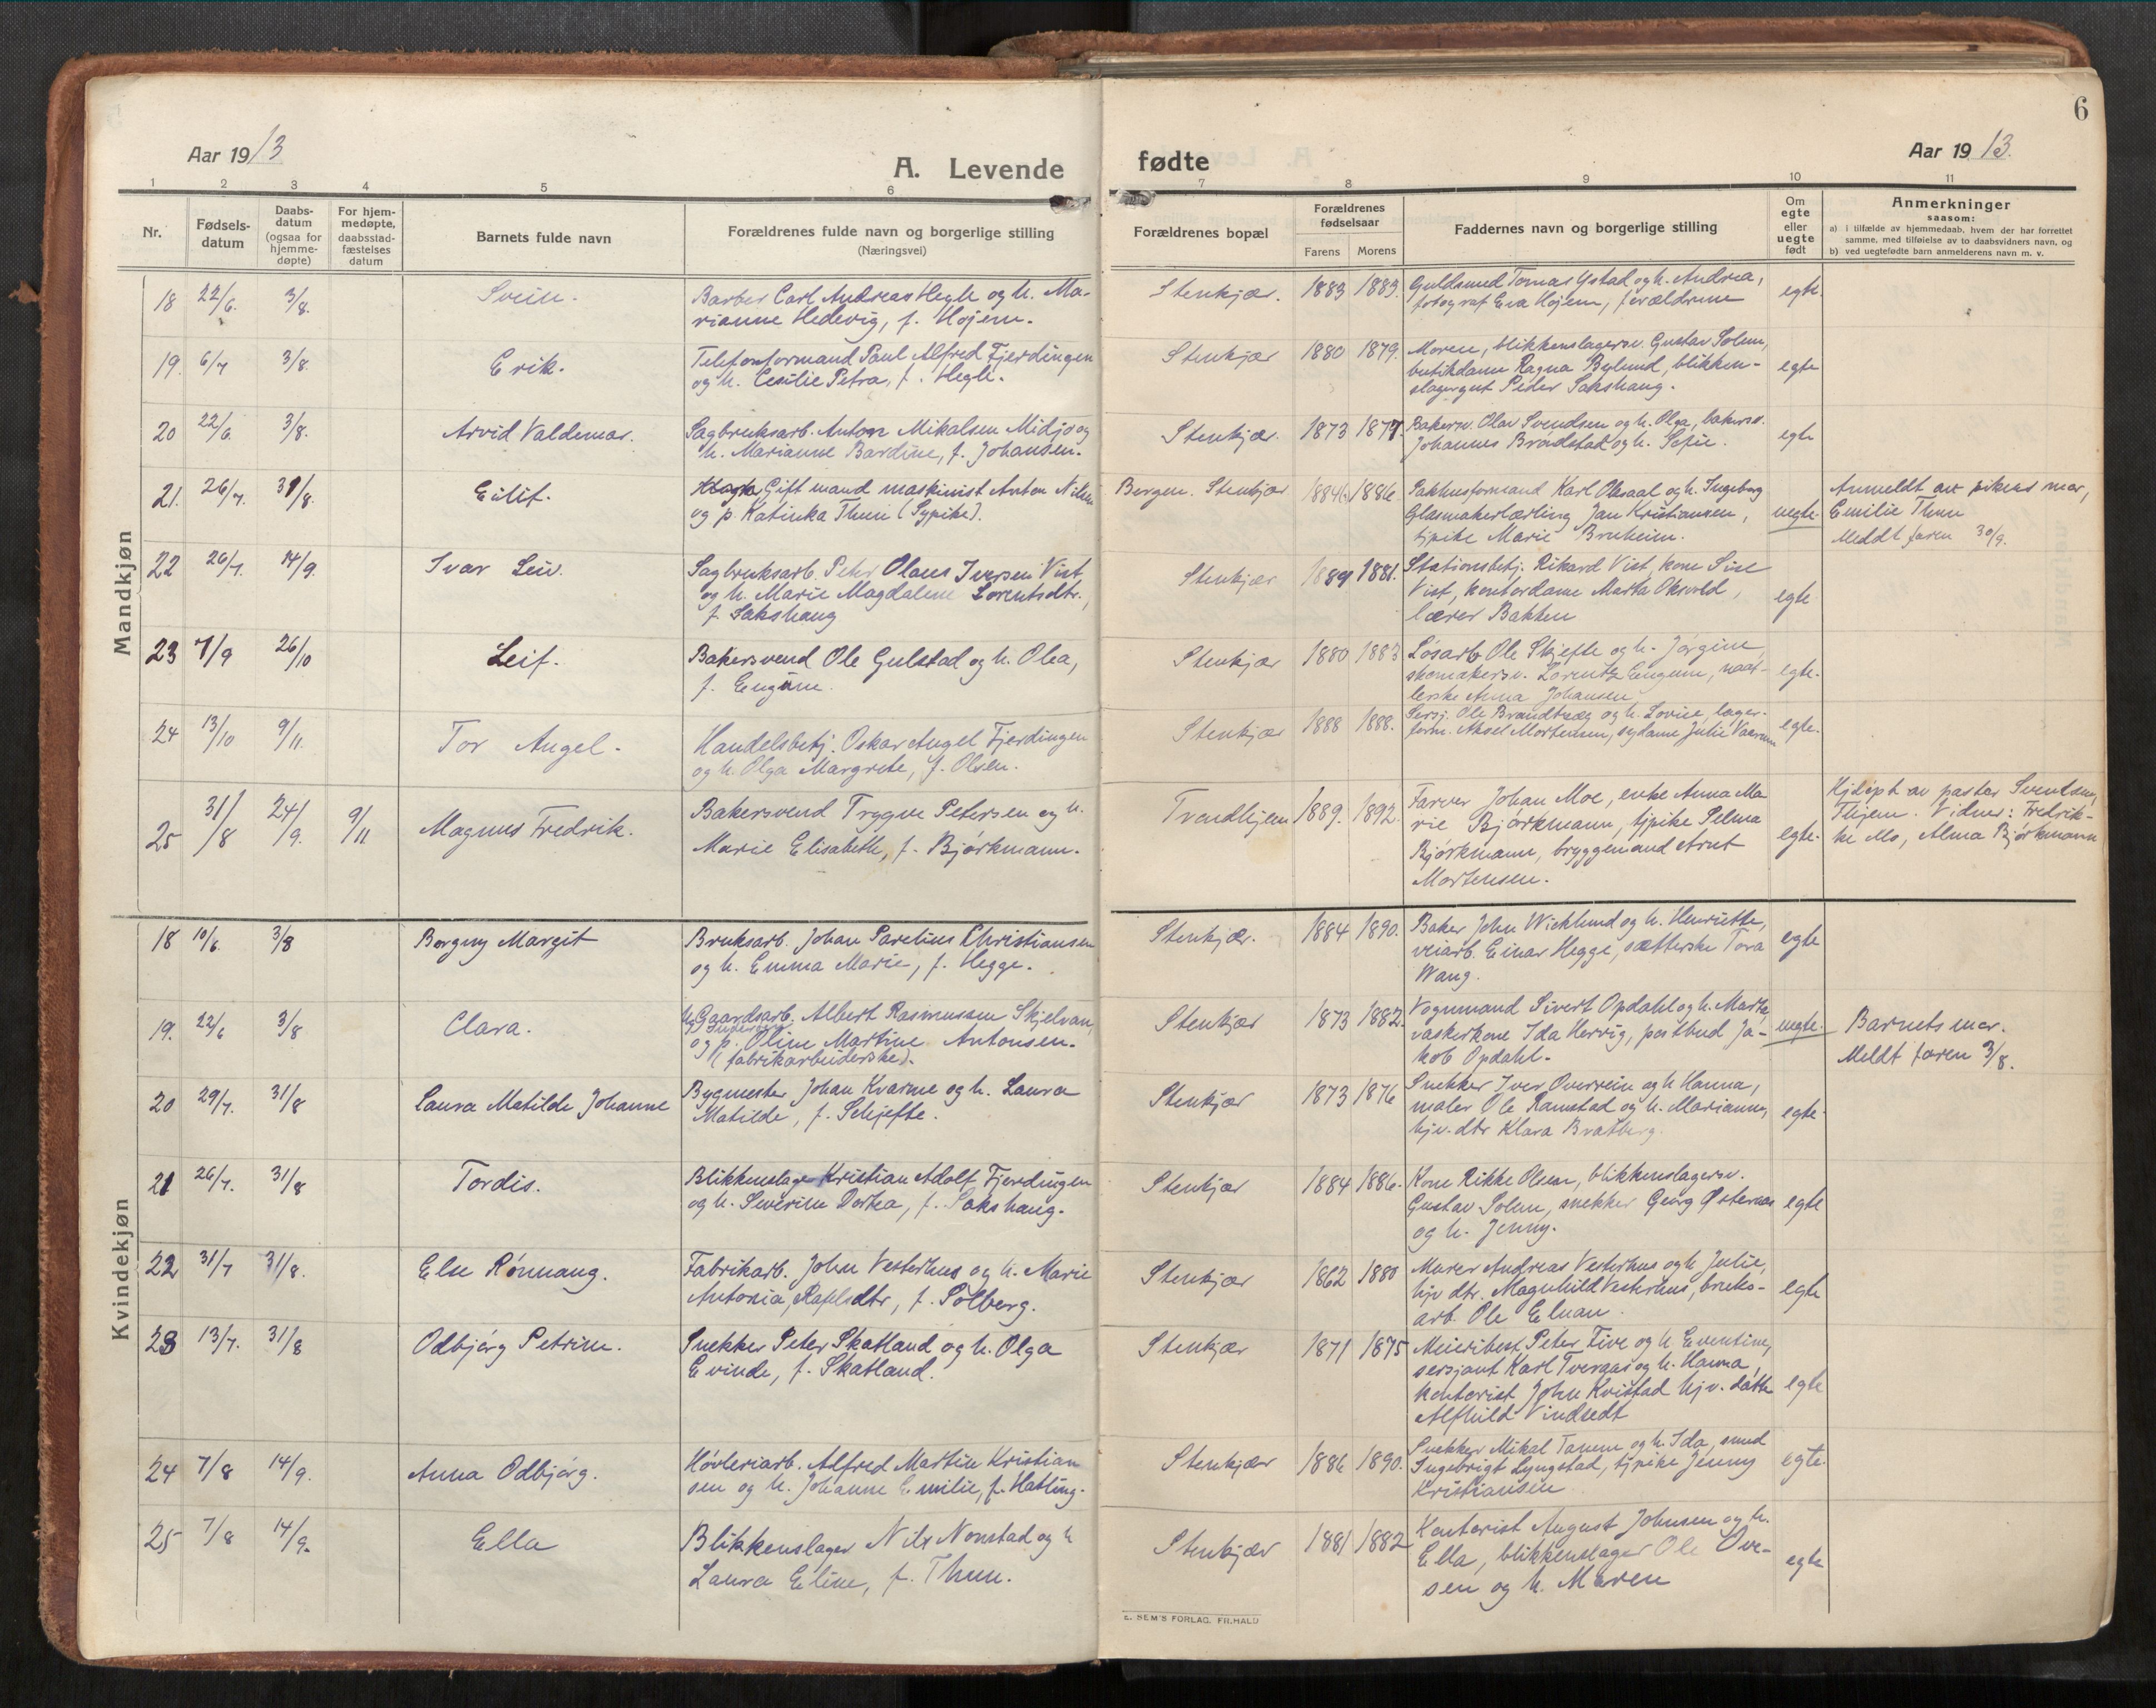 6
Aar 1913
A. Levende
fødte
Aar 1913.
1 2 3 4 5 6 7 8 9 10 11
Nr.
Fødsels-
datum
Daabs-
datum
(ogsaa for
hjemme-
døpte)
For hjem-
medøpte,
daabsstad-
fæstelses
datum
Barnets fulde navn
Forældrenes fulde navn og borgerlige stilling
(Næringsvei)
Forældrenes bopæl
Forældrenes
fødselsaar
Farens Morens
Faddernes navn og borgerlige stilling
Om
egte
eller
uegte
født
Anmerkninger
saasom:
a) i tilfælde av hjemmedaab, hvem der har forrettet
samme, med tilføielse av to daabsvidners navn, og
b) ved uegtefødte barn anmelderens navn m. v.
Mandkjøn
18 22/6. 3/8. Svein.
Barber Carl Andreas Hegle og h. Ma-
rianne Hedevig, f. Højem.
Stenkjær. 1883 1883.
Guldsmed Tomas Ystad og h. Andrea,
fotograf Eva Højem, forældrene
egte.
19. 6/7 3/8. Erik.
Telefonformand Paul Alfred Fjerdingen
og h. Cecilie Petra, f. Hegle.
Stenkjær 1880 1879.
Moren, blikkenslagersv. Gustav Solem,
butikdame Ragna Bylund, blikken-
slagergut Peder Sakshaug.
egte
20 22/6. 3/8. Arvid Valdemar.
Sagbruksarb. Anton Mikalsen Midjo og
h. Marianne Bardine, f. Johansen.
Stenkjær. 1873 1877.
Bakersv. Olav Svendsen og h. Olga, bakersv.
Johannes Brandstad og h. Sofie.
egte
21. 26/7. 31/8. Eilif.
Gift mand maskinist Anton Nilsen
og p. Katinka Thun (Sypike).
Bergen. Stenkjær 1884 1886.
Pakhusformand Karl Oksaal og h. Ingeborg
Glasmakerlærling Jan Kristiansen,
tjpike Marie Bruheim.
uegte
Anmeldt av pikens mor,
Emilie Thun
Meldt faren 30/9.
22 26/7. 14/9. Ivar Leiv.
Sagbruksarb. Peter Olaus Iversen Vist
og h. Marie Magdalene Lorentsdtr.,
f. Sakshaug
Stenkjær 1881.
Stationsbetj. Rikard Vist, kone Sise
Vist, kontordame Marta Oksvold,
lærer Bakken
egte
23 7/9 26/10 Leif.
Bakersvend Ole Gulstad og h. Olea,
f. Engum.
Stenkjær 1880 1883
Løsarb. Ole Skjefte og h. Jørgine,
skomakersv. Lorentz Engum,
Anna Johansen
egte.
24 13/10 9/11. Tor Angel.
Handelsbetj. Oskar Angel Fjerdingen
og h. Olga Margrete, f. Olsen.
Stenkjær 1888 1888.
Sersj. Ole Brandtzæg og h. Lovise, lager-
form. Aksel Mortensen, sydame Julie
egte.
25 31/8 24/9. 9/11 Magnus Fredrik.
Bakersvend Trygve Petersen og h.
Marie Elisabeth, f. Bjørkmann.
Trondhjem 1889. 1892.
Farver Johan Moe, enke Anna Ma
rie Bjørkmann, tjpike Selma
Bjørkmann, bryggemand Arnt
Mortensen.
egte.
Hjdøpt av pastor Svendsen,
Thjem. Vidner: Fredrik-
ke Mo, Alma Bjørkmann
Kvindekjøn
18 10/6. 3/8 Borgny Margit
Bruksarb. Johan Parelius Christiansen
og h. Emma Marie, f. Hegge.
Stenkjær. 1884 1890.
Baker John Wicklund og h. Henriette,
veiarb. Einar Hegge, sætterske Tora
Wang.
egte
19. 22/6 3/8 Clara.
Gaardsarb. Albert Rasmussen Skjelvan,
og p. Oline Martine Antonsen.
(fabrikarbeiderske).
Stenkjær 1873 1882.
Vognmand Sivert Opdahl og h. Marta,
vaskerkone Ida Hervig, postbud Ja-
kob Opdahl.
uegte.
Barnets mor.
Meldt faren 3/8.
20 29/7. 31/8 Laura Matilde Johanne
Bygmester Johan Kvarme og h. Laura
Matilde, f. Schjefte.
Stenkjær 1873 1876
Snekker Iver Overrein og h Hanna,
maler Ole Ramstad og h. Marianne,
hjv. dtr Klara Bratberg.
egte.
21 26/7. 31/8 Tordis.
Blikkenslager Kristian Adolf Fjerdingen
og h. Severine Dortea, f. Sakshaug.
Stenkjær 1884 1886.
Kone Rikke Olsen, blikkenslagersv.
Gustav Solem, snekker Georg Østeraas
og h. Jenny.
egte
22 31/7 31/8. Else Rønnaug.
Fabrikarb. John Vesterhus og h. Marie
Antonia, f. Solberg.
Stenkjær 1862 1880
Murer Andreas Vesterhus og h Julie,
hjv dtr. Magnhild Vesterhus, bruks-
arb. Ole Elnan.
egte
23 13/7. 31/8 Odbjørg Petrine.
Snekker Peter Skatland og h. Olga
Evinde, f. Skatland.
Stenkjær 1871 1875
Meieribest. Peter Five og h Eventine,
sersjant Karl Tveraas og h. Hanna,
kontorist John Kvistad hjv. datter
Alfhild Vindsedt
egte
24 7/8 14/9. Anna Odbjørg.
Høvleriarb. Alfred Martin Kristian
sen og h. Johanne Emilie, f. Hatling.
Stenkjær 1886 1890.
Snekker Mikal Tanem og h. Ida, smed
Ingebrigt Lyngstad, tjpike Jenny
Kristiansen
egte.
25 7/8 14/9. Ella
Blikkenslager Nils Nonstad og h
Laura Eline, f. Thun.
Stenkjær 1881 1882
Kontorist August Johnsen og h.
Ella, blikkenslager Ole Ove-
sen og h. Maren
egte
E. SEM'S FORLAG. FR.HALD